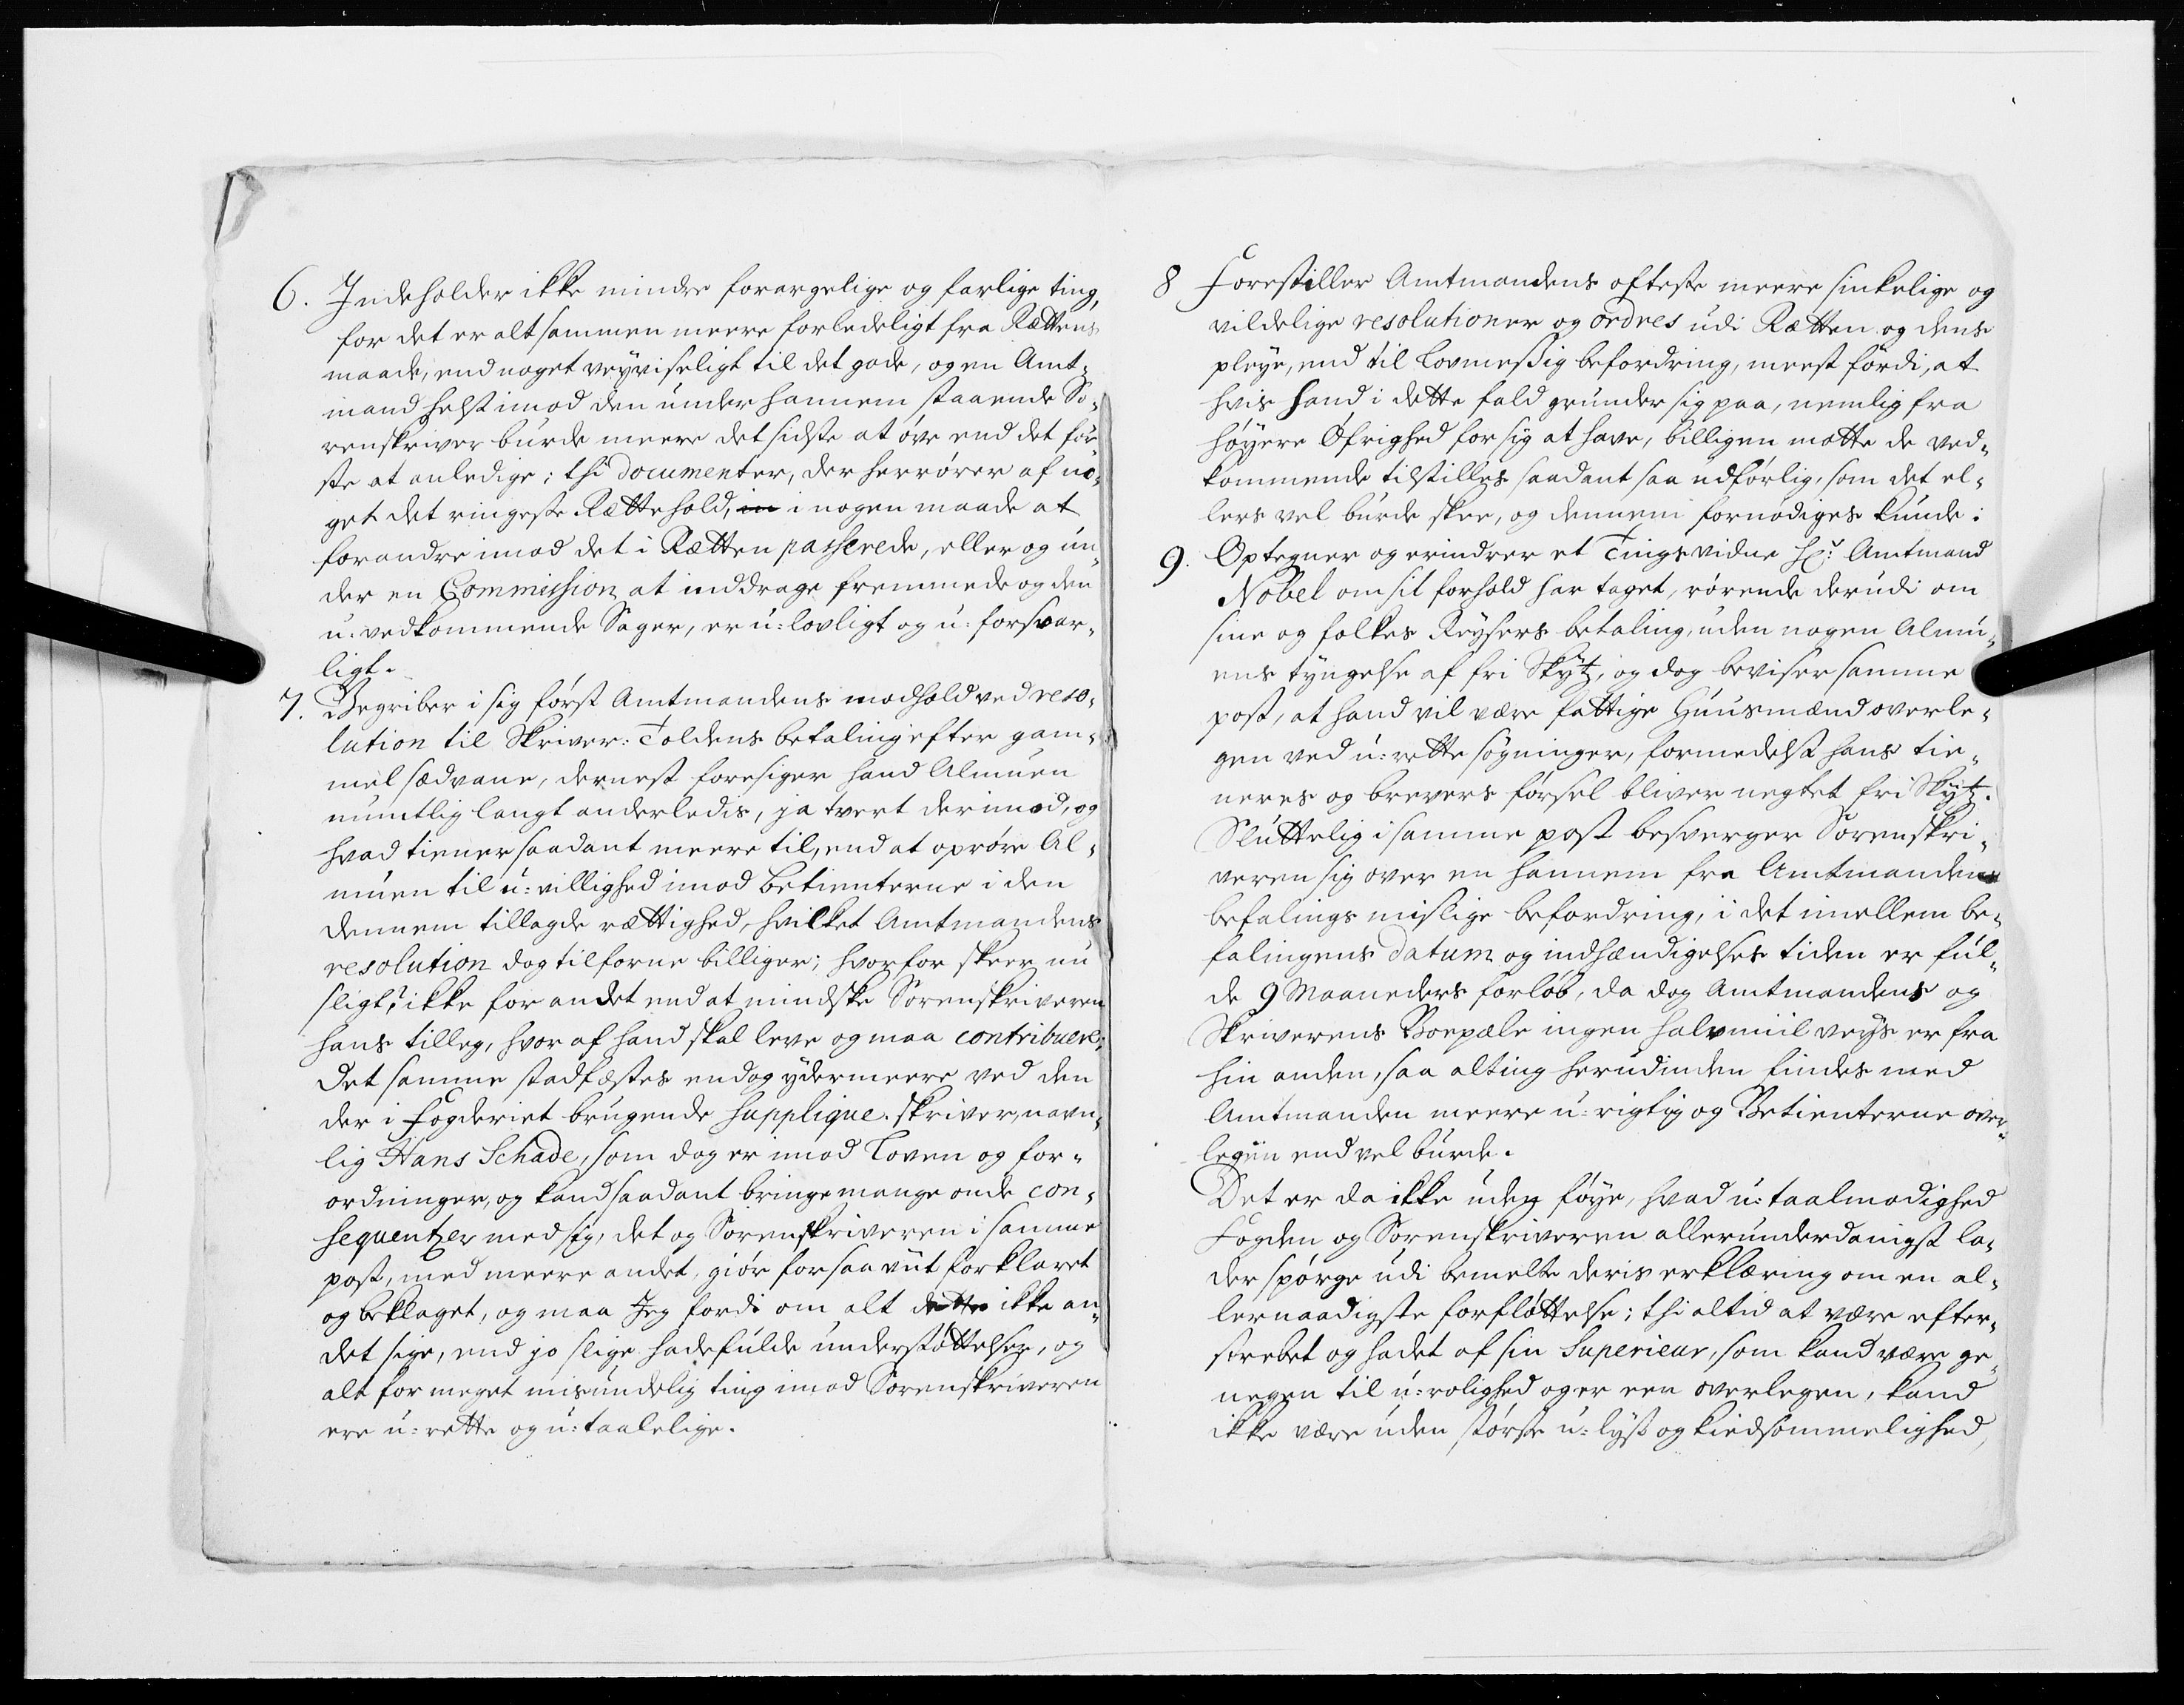 6. Indeholder ikke mindre forargelige og farlige ting,
for det er altsammen meere forledeligt fra Rættens
maade, end noget veyviseligt til det gode, og en Amt¬
mand helst imod den under hannem staaende So¬
renskriver burde meere det sidste at øve end det før¬
ste at anledige; thi documenter, der herrører af no¬
get det ringeste Rættehold, in i nogen maade at
forandre imod det i Rætten passerede, eller og un¬
der en Commission at inddrage fremmede og den
u-vedkommende Sager, er u-lovligt og u-forsvar¬
ligt.
7. Begriber i sig først Amtmandens modhold ved reso¬
lution til Skriver-Toldens betaling efter gam¬
mel sædvane, dernest foresiger hand Almuen
mundtlig langt anderledis, ja tvert derimod, og
hvad tiener saadant meere til, end at oprøre Al¬
muen til u-villighed imod Betienterne i den
dennem tillagde rættighed, hvilket Amtmandens
resolution dog tilforne billiger; hvorfor skeer nu
sligt? ikke for andet end at mindske Sorenskriveren
hans tilleg, hvor af hand skal leve og maa contribuere;
Det samme stadfæstes endog ydermeere ved den
der i Fogderiet brugende supplique-skriver, navn¬
lig Hans Schade, som dog er imod Loven og for¬
ordninger, og kand saadant bringe mange onde con¬
sequentzer med sig, det og Sorenskriveren i samme
post, med meere andet, giør forsaavit forklaret
og beklaget, og maa Jeg fordi om alt dette ikke an¬
det sige, end jo slige hadefulde understøttelser, og
alt for meget misundelig ting imod Sorenskriveren
ere u-rette og u-taalelige.
8 Forestiller Amtmandens ofteste meere sinkelige og
vildelige resolutioner og ordres udi Rætten og dens
pleye, end til Lovmessig befordring, meest fordi, at
hvis hand i dette fald grunder sig paa, nemlig fra
høyere Øfrighed for sig at have, billigen motte de ved¬
kommende tilstilles saadant saa udførlig, som det el¬
lers vel burde skee, og dennem fornødiges kunde:
9. Optegner og erindrer et Tingsvidne Hr: Amtmand
Nobel om sit forhold har taget, rørende derudi om
sine og folkes Reysers betaling, uden nogen Almu¬
ens tyngelse af fri Skytz, og dog beviser samme
post, at hand vil være fattige Huusmænd overle¬
gen ved u-rette søgninger, formedelst hans tie¬
neres og brevers førsel bliver negtet fri Skytz.
Sluttelig i samme post besverger Sorenskri¬
veren sig over en hannem fra Amtmanden
befalings mislige befordring, i det imellem be¬
falingens datum og indhændigelses tiden er ful¬
de 9 Maaneders forløb, da dog Amtmandens og
Skriverens Boepæle ingen halvmiil veys er fra
hin anden, saa alting herudinden findes med
Amtmanden meere u-rigtig og Betienterne over¬
legen end vel burde.
Det er da ikke uden føye, hvad u-taalmodighed
Fogden og Sorenskriveren allerunderdanigst la¬
der spørge udi bemelte deris erklæring om en al¬
lernaadigste forfløttelse; thi altid at være efter¬
strebet og hadet af sin Superieur, som kand være ge¬
negen til u-rolighed og er een overlegen, kand
ikke være uden største u-lyst og kiedsommelighed,